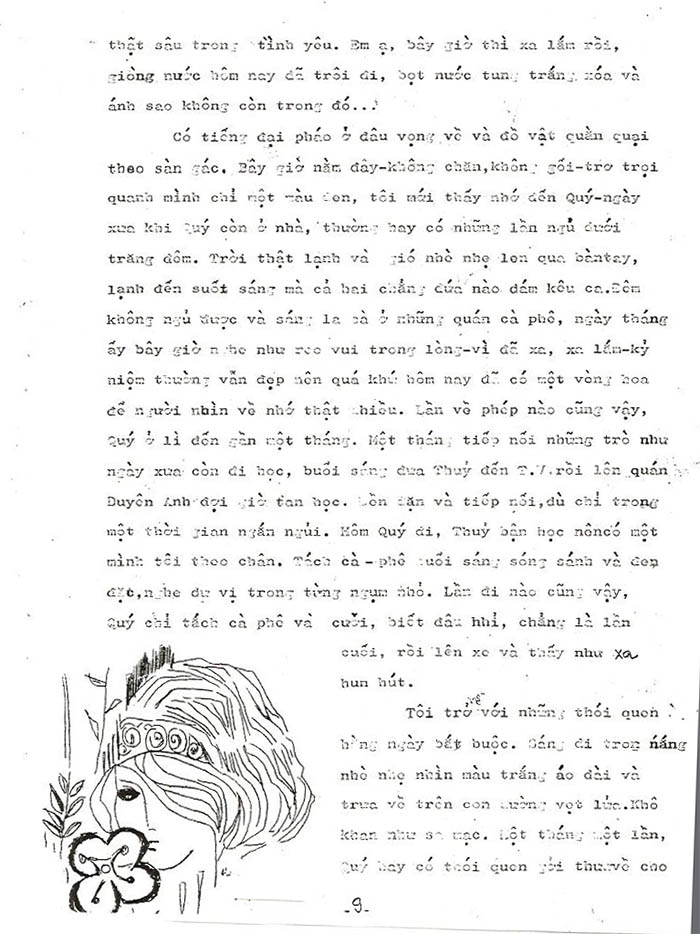 thật sâu trong tình yêu. Em ạ, bây giờ thì xa lắm rồi,
giòng nước hôm nay đã trôi đi, bọt nước tung trắng xóa và
ánh sao không còn trong đó...!
Có tiếng đại pháo ở đâu vọng về và đồ vật quằn quại
theo sàn gác. Bây giờ nằm đây-không chăn,không gối-trơ trọi
quanh mình chỉ một màu đen, tôi mới thấy nhớ đến Quý-ngày
xưa khi Quý còn ở nhà, thường hay có những lần ngủ dưới
trăng đêm. Trời thật lạnh và gió nhè nhẹ len qua bàntay,
lạnh đến suốt sáng mà cả hai chẳng đứa nào dám kêu ca.Đêm
không ngủ được và sáng la cà ở những quán cà phê, ngày tháng
ấy bây giờ nghe như reo vui trong lòng-vì đã xa, xa lắm-kỷ
niệm thường vẫn đẹp nên quá khứ hôm nay đã có một vòng hoa
để người nhìn về nhớ thật nhiều. Lần về phép nào cũng vậy,
Quý ở lì đến gần một tháng. Một tháng tiếp nối những trò như
ngày xưa còn đi học, buổi sáng đưa Thuỷ đến T.V.rồi lên quán
Duyên Anh đợi giờ tan học. Đều đặn và tiếp nối,dù chỉ trong
một thời gian ngắn ngủi. Hôm Quý đi, Thuỷ bận học nêncó một
mình tôi theo chân. Tách cà-phê buổi sáng sóng sánh và đen
đặc,nghe dư vị trong từng ngụm nhỏ. Lần đi nào cũng vậy,
Quý chỉ tách cà phê và cười, biết đâu nhỉ, chẳng là lần
cuối, rồi lên xe và thấy như xa
hun hút.
Tôi trở về với những thói quen
hằng ngày bắt buộc. Sáng đi trong nắng
nhè nhẹ nhìn màu trắng áo dài và
trưa về trên con đường vọt lửa.Khô
khan như sa mạc. Một tháng một lần,
Quý hay có thói quen gởi thư về cho
-9-